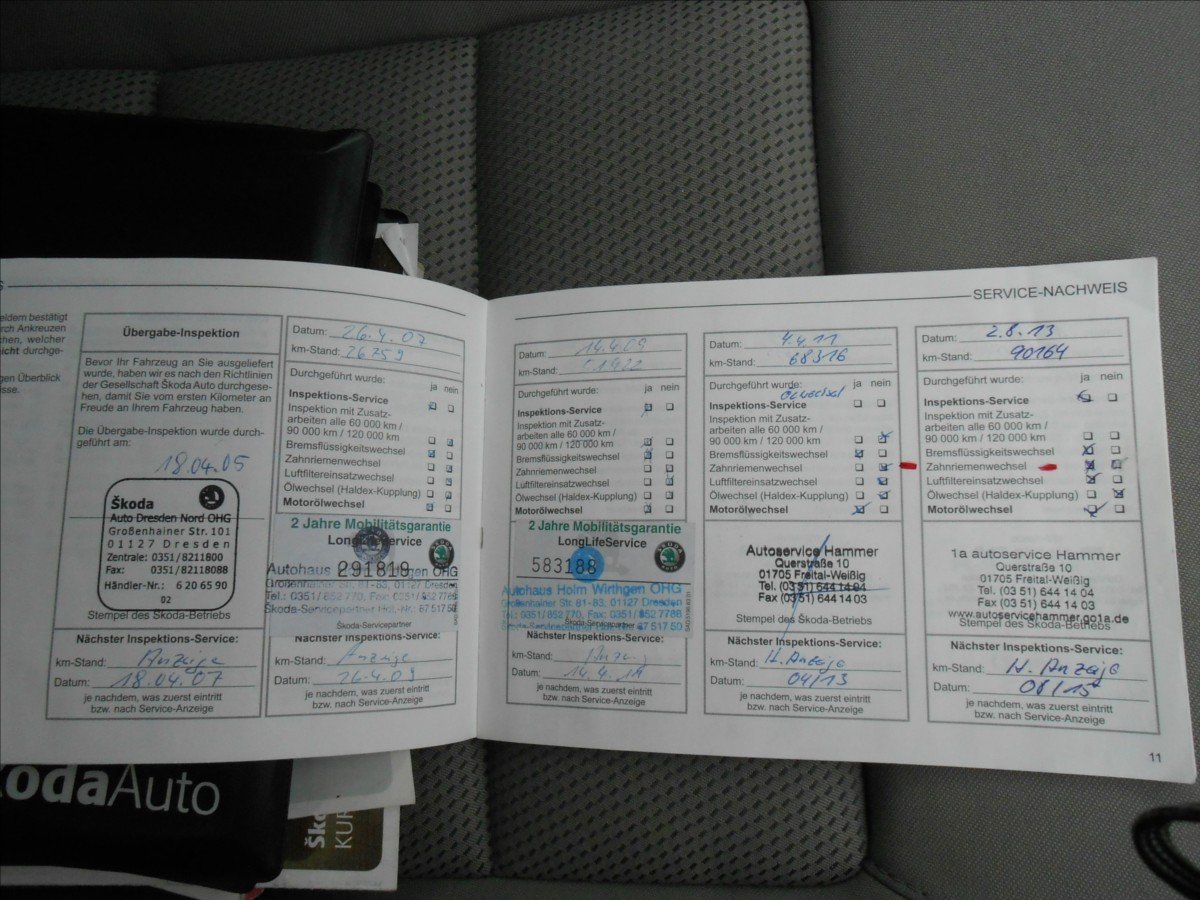 SERVICE-NACHWEIS
eldern bestätigt
rch Ankreuzen
chen, welcher
icht durchge-
gen Überblick
sse.
Übergabe-Inspektion
Bevor Ihr Fahrzeug an Sie ausgeliefert
wurde, haben wir es nach den Richtlinien
der Gesellschaft Škoda Auto durchgese-
hen, damit Sie vom ersten Kilometer an
Freude an Ihrem Fahrzeug haben.
Die Übergabe-Inspektion wurde durch-
geführt am:
18.04.05
Škoda
Auto Dresden Nord OHG
Großenhainer Str. 101
01127 Dresden
Zentrale: 0351/8211800
Fax: 0351/82118088
Händler-Nr.: 6 206 65 90
02
Stempel des Skoda-Betriebs
Nächster Inspektions-Service:
km-Stand: Anzeige
Datum: 18.04.07
je nachdem, was zuerst eintritt
bzw. nach Service-Anzeige
Datum: 26.4.07
km-Stand: 26759
Durchgeführt wurde:
ja nein
Inspektions-Service
Inspektion mit Zusatz-
arbeiten alle 60 000 km /
90 000 km / 120 000 km
Bremsflüssigkeitswechsel
Zahnriemenwechsel
Luftfiltereinsatzwechsel
Ölwechsel (Haldex-Kupplung)
Motorölwechsel
2 Jahre Mobilitätsgarantie
LongLifeService
291819
Autohaus OHG
Großenhainer Str. 81-83, 01127 Dresden
Tel.: 0351/852 770, Fax: 0351/852 7788
Škoda-Servicepartner 67 517 50
Škoda-Servicepartner
Nächster Inspektions-Service:
km-Stand: Anzeige
Datum: 26.4.09
je nachdem, was zuerst eintritt
bzw. nach Service-Anzeige
Datum: 14.4.09
km-Stand:
Durchgeführt wurde:
ja nein
Inspektions-Service
Inspektion mit Zusatz-
arbeiten alle 60 000 km /
90 000 km / 120 000 km
Bremsflüssigkeitswechsel
Zahnriemenwechsel
Luftfiltereinsatzwechsel
Ölwechsel (Haldex-Kupplung)
Motorölwechsel
2 Jahre Mobilitätsgarantie
LongLifeService
583188
Autohaus Holm Wirthgen OHG
Großenhainer Str. 81-83, 01127 Dresden
Tel.: 0351/852 770, Fax: 0351/852 7788
67 517 50
Škoda-Servicepartner
Nächster Inspektions-Service:
km-Stand:
Datum: 14.4.11
je nachdem, was zuerst eintritt
bzw. nach Service-Anzeige
Datum: 4.4.11
km-Stand: 68316
Durchgeführt wurde:
ja nein
Ölwechsel
Inspektions-Service
Inspektion mit Zusatz-
arbeiten alle 60 000 km /
90 000 km / 120 000 km
Bremsflüssigkeitswechsel
Zahnriemenwechsel
Luftfiltereinsatzwechsel
Ölwechsel (Haldex-Kupplung)
Motorölwechsel
Autoservice Hammer
Querstraße 10
01705 Freital-Weißig
Tel. (03 51) 644 14 04
Fax (03 51) 644 14 03
Stempel des Skoda-Betriebs
Nächster Inspektions-Service:
km-Stand: N. Anzeige
Datum: 04/13
je nachdem, was zuerst eintritt
bzw. nach Service-Anzeige
Datum: 2.8.13
km-Stand: 90164
Durchgeführt wurde:
ja nein
Inspektions-Service
Inspektion mit Zusatz-
arbeiten alle 60 000 km /
90 000 km / 120 000 km
Bremsflüssigkeitswechsel
Zahnriemenwechsel
Luftfiltereinsatzwechsel
Ölwechsel (Haldex-Kupplung)
Motorölwechsel
1a autoservice Hammer
Querstraße 10
01705 Freital-Weißig
Tel. (03 51) 644 14 04
Fax (03 51) 644 14 03
www.autoservicehammer.go1a.de
Stempel des Skoda-Betriebs
Nächster Inspektions-Service:
km-Stand: N. Anzeige
Datum: 08/15
je nachdem, was zuerst eintritt
bzw. nach Service-Anzeige
11
kodaAuto
Ško
KUR